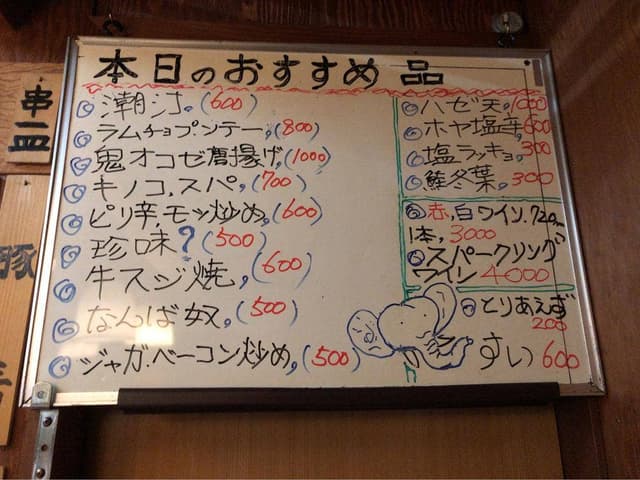 本日のおすすめ品
潮汁,(600)
ラムチョプ.ンテー,(800)
鬼オコゼ唐揚げ,(1000)
キノコ.スパ,(700)
ピリ辛.モツ炒め,(600)
珍味?(500)
牛スジ焼,(600)
なんば奴,(500)
ジャガ.ベーコン炒め,(500)
ハゼ天,1000
ホヤ塩辛,600
塩ラッキョ,300
鮭冬葉,300
赤,白ワイン.720m
1本,3000
スパークリング
ワイン4000
とりあえず
200
すい600
串
豚